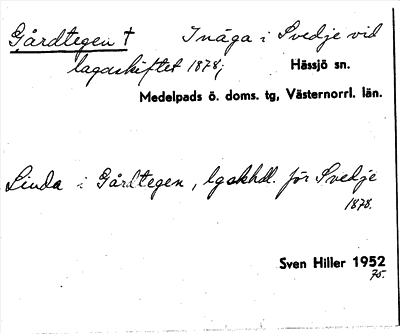 Gårdtegen † Inäga i Svedje vid
lagaskiftet 1878; Hässjö sn.
Medelpads ö. doms. tg, Västernorrl. län.
Linda i Gårdtegen, lgskhdl. för Svedje
1878.
Sven Hiller 1952
75.